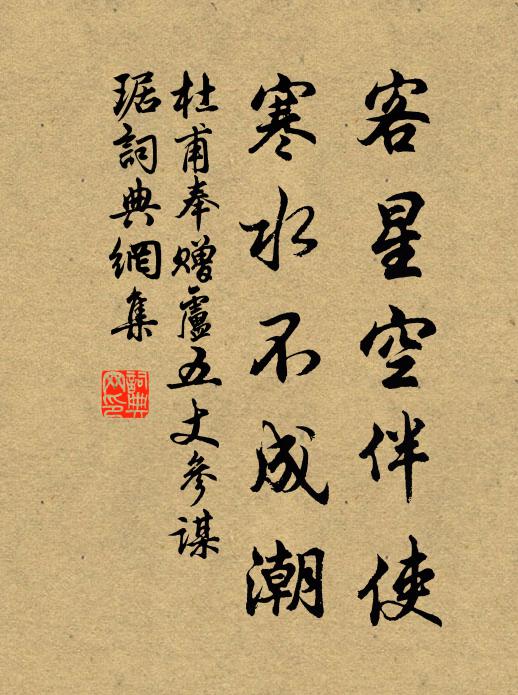 客星空伴使
寒水不成潮
杜甫奉赠盧五丈参謀
琚詞典網集
詞典网印